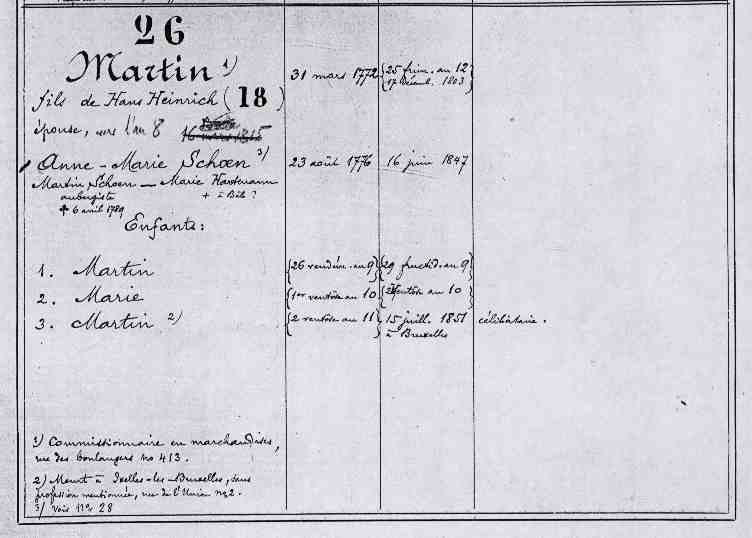 26
Martin 1) 31 mars 1772 {25 frim. an 12 17 décemb. 1803}
fils de Hans Heinrich (18)
épouse, vers l'an 8 16 mars 1815
Anne-Marie Schoen 3) 23 août 1776 16 juin 1847
Martin Schoen — Marie Hartmann
aubergiste + à Bâle ?
+ 6 avril 1789
Enfants:
1. Martin {26 vendém. an 9} {29 fructid. an 9}
2. Marie {1er ventôse an 10} {ventôse an 10}
3. Martin 2) {2 ventôse an 11} 15 juill. 1851 célibataire.
à Bruxelles
1) Commissionnaire en marchandises,
rue des boulangers no 413.
2) Meurt à Ixelles-les-Bruxelles, sans
profession mentionnée, rue de l'Union no 2.
3) Vois no 28